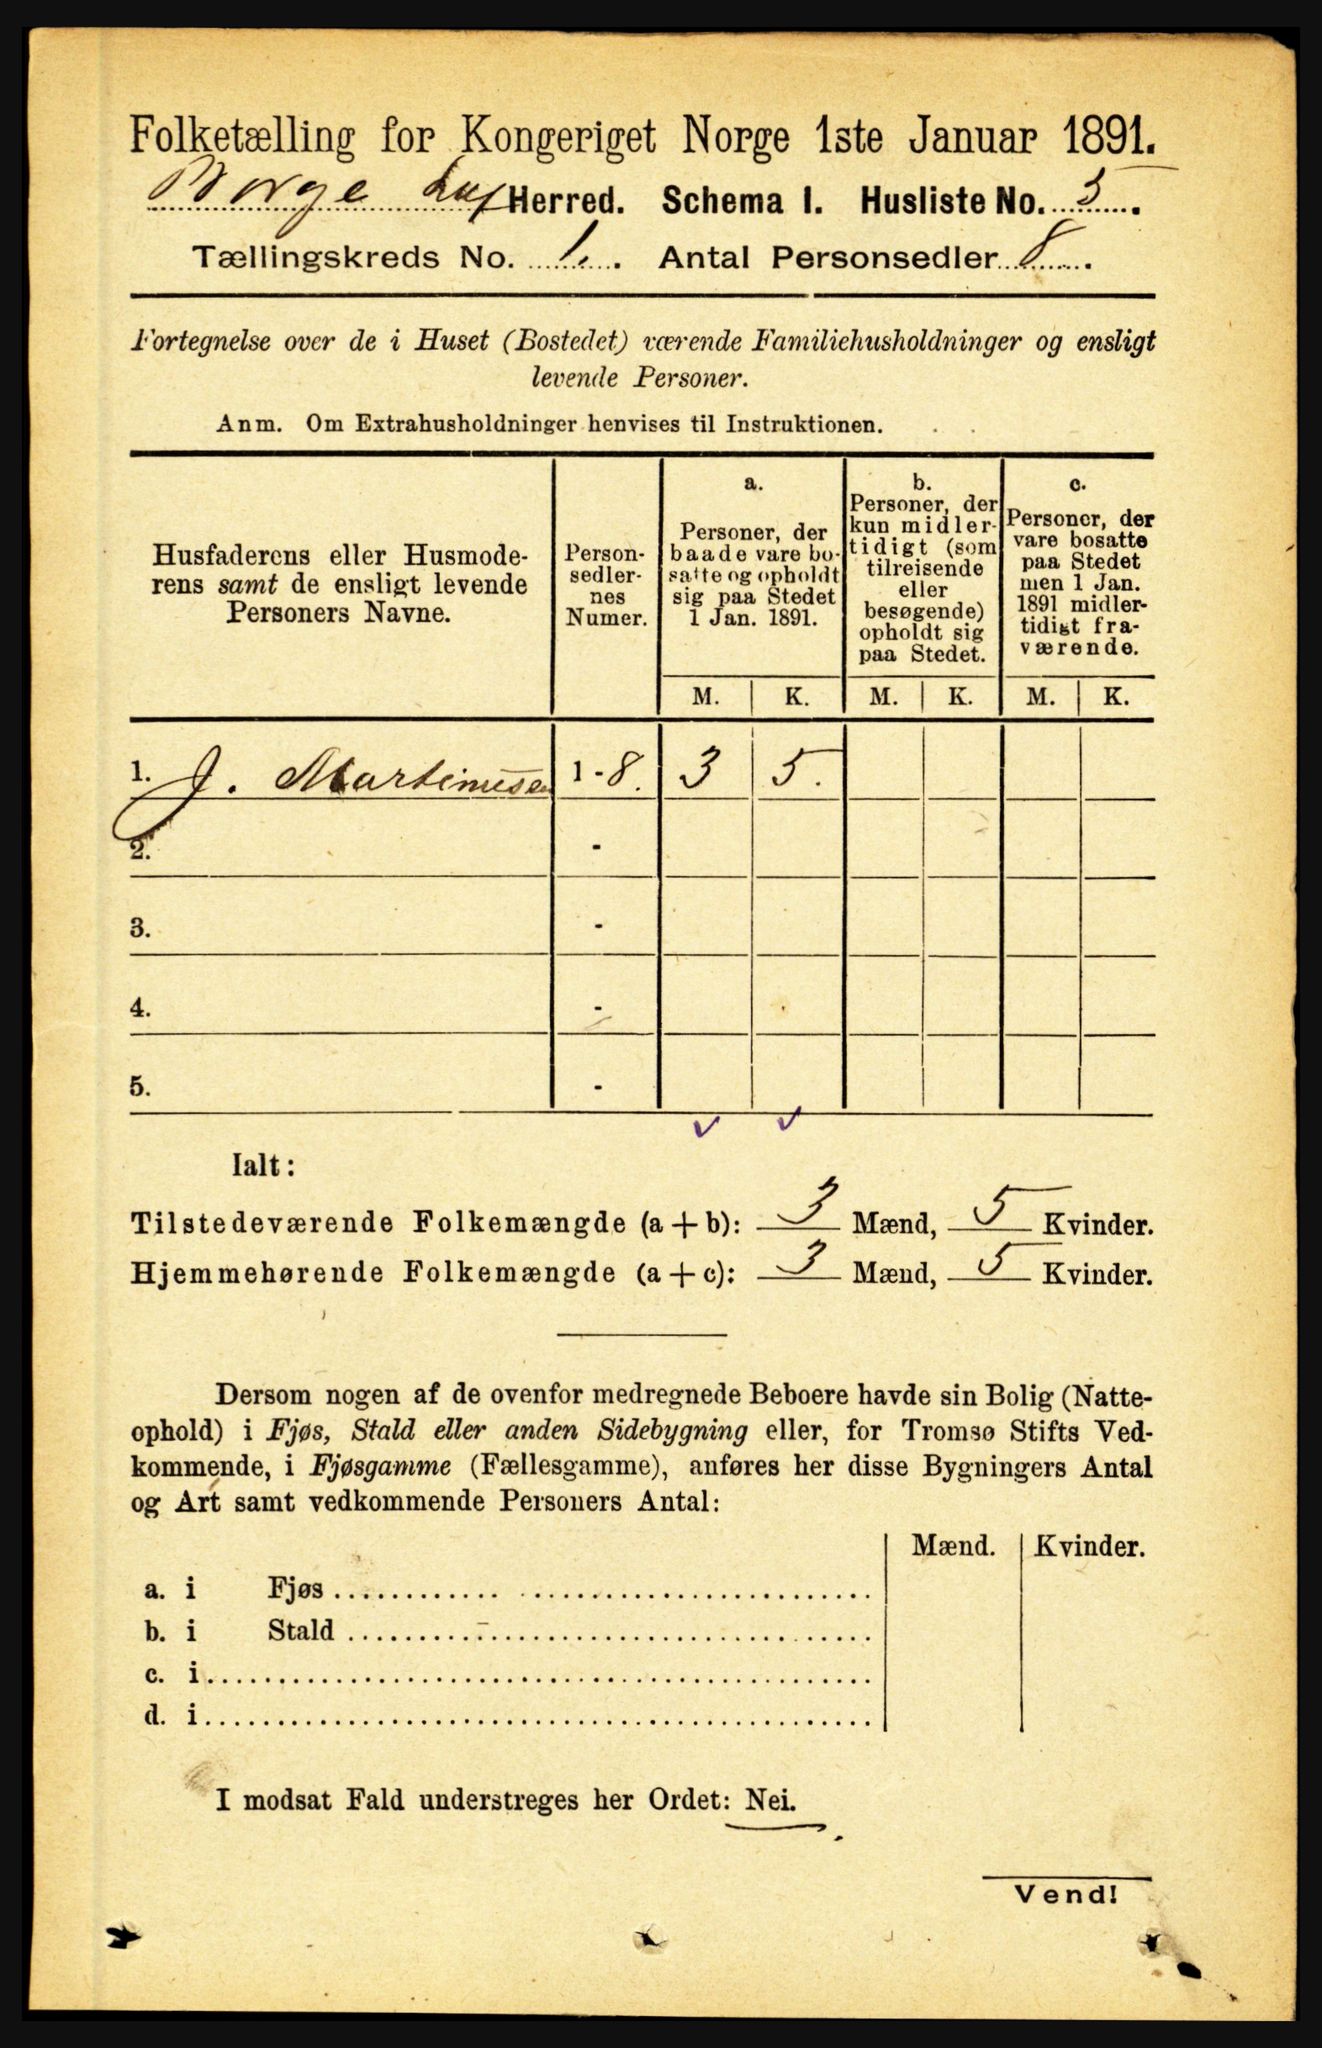 Folketælling for Kongeriget Norge 1ste Januar 1891.
Borge Lof Herred. Schema I. Husliste No. 5.
Tællingskreds No. 1. Antal Personsedler 8.
Fortegnelse over de i Huset (Bostedet) værende Familiehusholdninger og ensligt
levende Personer.
Anm. Om Extrahusholdninger henvises til Instruktionen.
Husfaderens eller Husmode-
rens samt de ensligt levende
Personers Navne.
Person-
sedler-
nes
Numer.
a.
Personer, der
baade vare bo-
satte og opholdt
sig paa Stedet
1 Jan. 1891.
b.
Personer, der
kun midler-
tidigt (som
tilreisende
eller
besøgende)
opholdt sig
paa Stedet.
c.
Personer, der
vare bosatte
paa Stedet
men 1 Jan.
1891 midler-
tidigt fra-
værende.
M. K. M. K. M. K.
1. J. Martinusen 1 - 8. 3 5.
2. -
3. -
4. -
5. -
Ialt:
Tilstedeværende Folkemængde (a + b): 3 Mænd, 5 Kvinder.
Hjemmehørende Folkemængde (a + c): 3 Mænd, 5 Kvinder.
Dersom nogen af de ovenfor medregnede Beboere havde sin Bolig (Natte-
ophold) i Fjøs, Stald eller anden Sidebygning eller, for Tromsø Stifts Ved-
kommende, i Fjøsgamme (Fællesgamme), anføres her disse Bygningers Antal
og Art samt vedkommende Personers Antal:
Mænd. Kvinder.
a. i Fjøs
b. i Stald
c. i
d. i
I modsat Fald understreges her Ordet: Nei.
Vend!